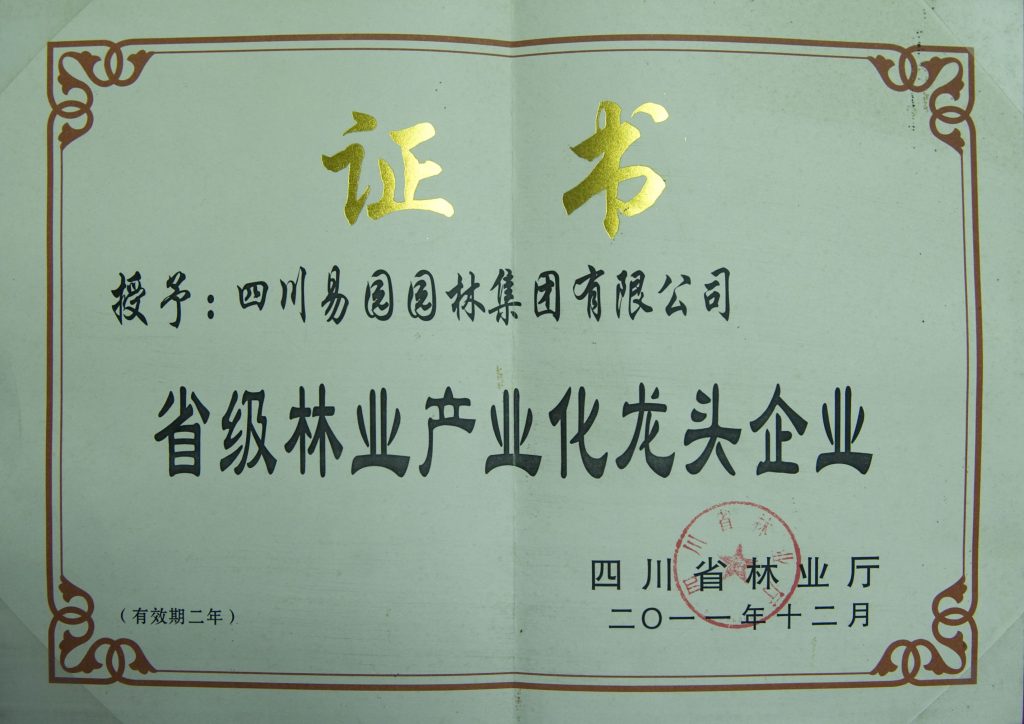 证书
授予：四川易园园林集团有限公司
省级林业产业化龙头企业
四川省林业厅
四川省林业厅
二〇一一年十二月
（有效期二年）